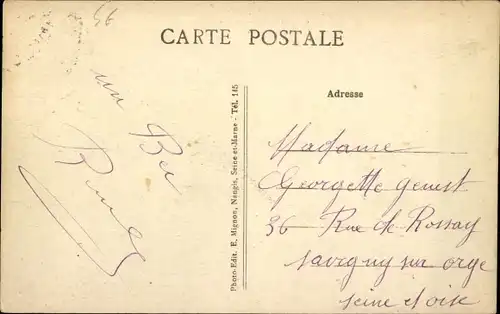 56
CARTE POSTALE
un Bec
Photo-Edit. E. Mignon, Nangis, Seine-et-Marne - Tél. 145
Adresse
Madame
Georgette Genest
36 Rue de Rossay
Savigny sur orge
Seine et oise